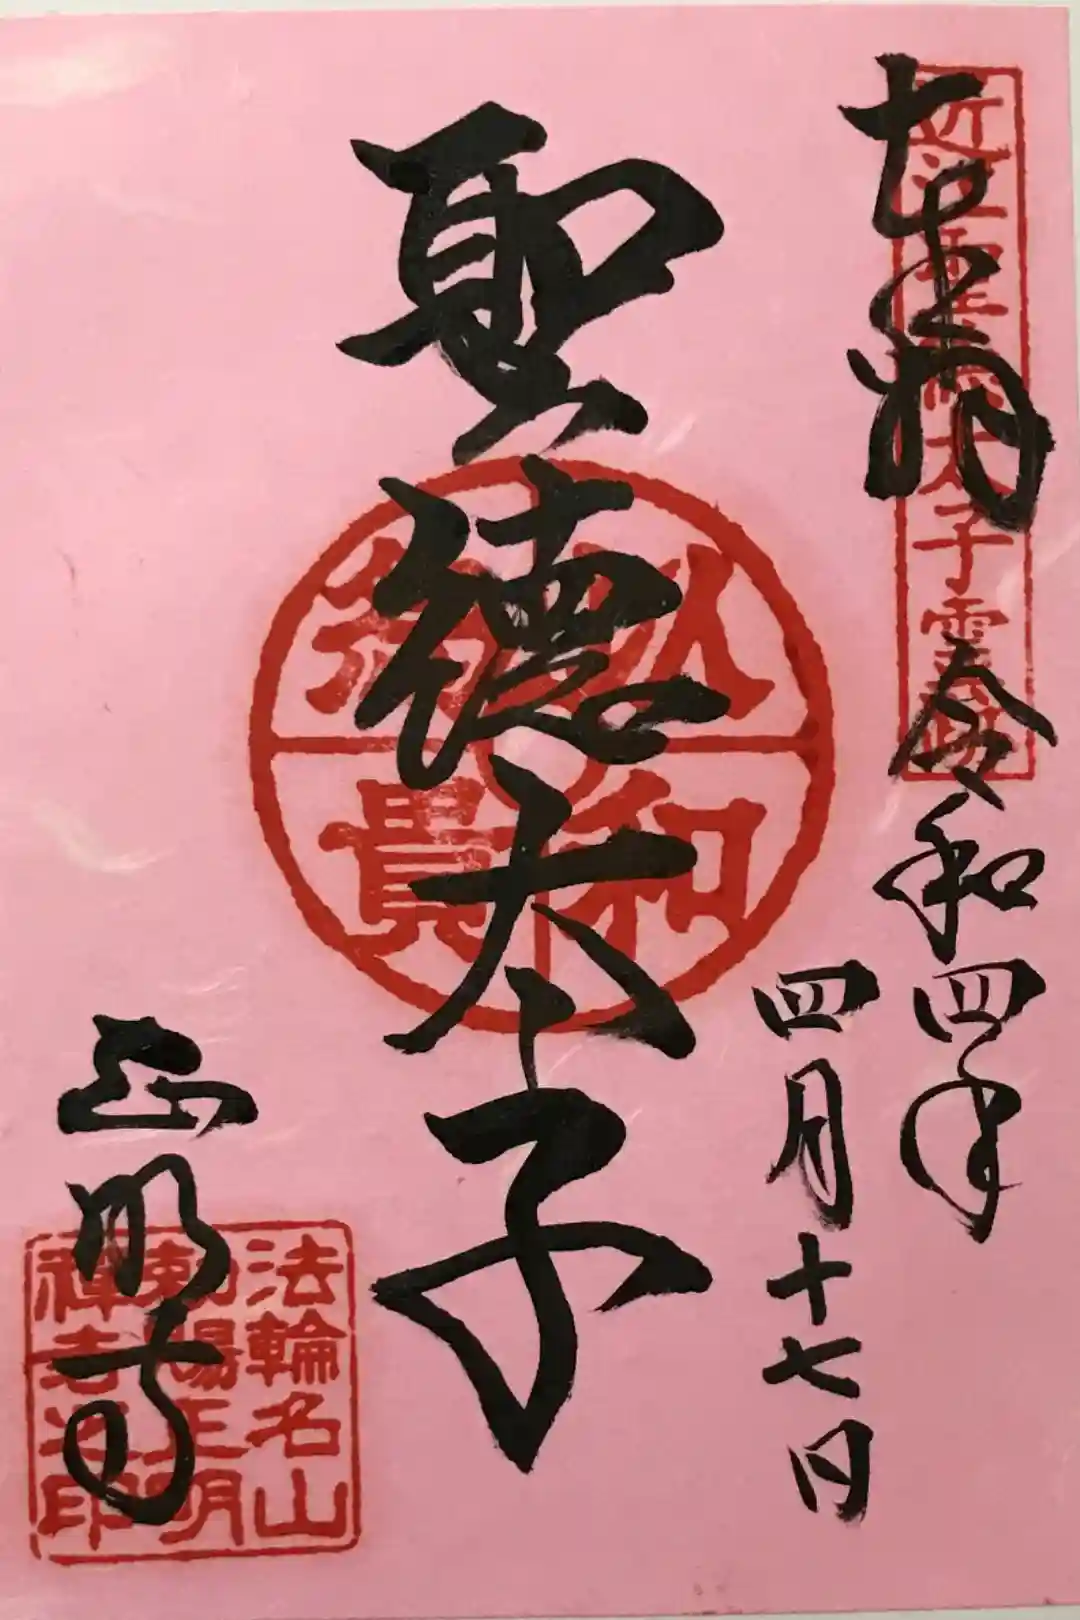 奉拝
近江聖徳太子霊場
令和四年
四月十七日
聖徳太子
以和為貴
正明寺
法輪名山
勅賜正明
禅寺之印